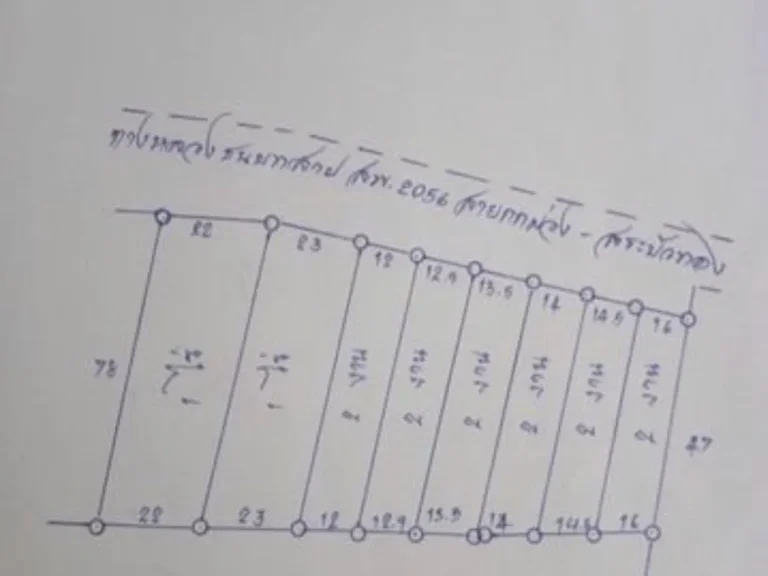 ทางหลวงชนบทสาย สพ. 2056 สายกกม่วง - สระบัวทอง
22 23 12 12.9 13.5 14 14.5 16
78 1 ไร่ 1 ไร่ 2 งาน 2 งาน 2 งาน 2 งาน 2 งาน 2 งาน 47
22 23 12 12.9 13.5 14 14.5 16